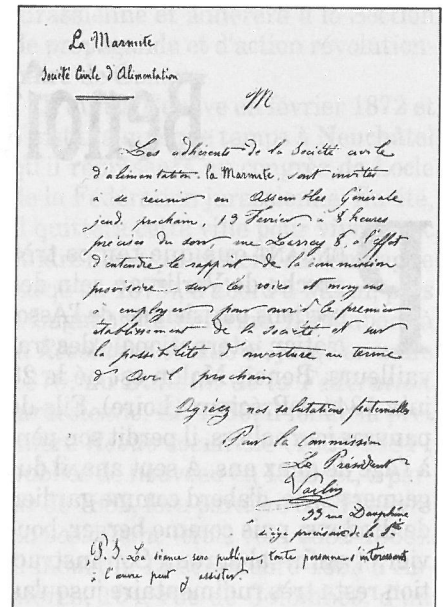 La Marmite
Société Civile d'Alimentation
M
Les adhérents de la Société civile
d'alimentation la Marmite, sont invités
à se réunir en Assemblée Générale
jeudi prochain 13 Février à 8 heures
précises du soir, rue Larrey 8, à l'effet
d'entendre le rapport de la commission
provisoire, sur les voies et moyens
à employer pour ouvrir le premier
établissement de la société et sur
la possibilité d'ouverture au terme
d'avril prochain
Agréez nos salutations fraternelles
Pour la Commission
Le Président
Varlin
33 rue Dauphine
siège provisoire de la Sté
La séance sera publique, toute personne s'intéressant
à l'œuvre peut y assister.